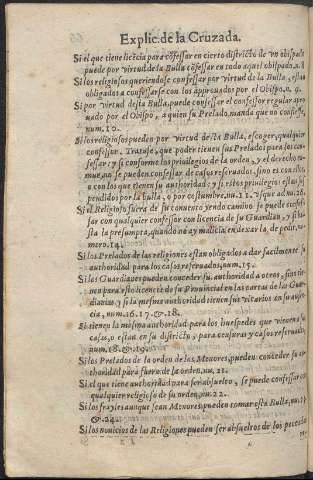 Explic. de la Cruzada.
Si el que tiene licẽcia para cõfessar en cierto districto de vn obispado
puede por virtud de la Bulla cõfessar en todo aquel obispado, n. 8
Si los religiosos queriendose confessar por virtud de la Bulla, estan
obligados a confessarse con los approuados por el Obispo, n. 9.
Si por virtud desta Bulla, puede confessar el confessor regular apro
uado por el Obispo, a quien su Prelado manda que no confiesse,
num. 10.
Si los religiosos pueden por virtud desta Bulla, escoger qualquier
confessor. Tratase, que poder tienen sus Prelados para los con-
fessar: y si conforme los priuilegios de la orden, y el derecho co-
mun, no se pueden confessar de casos reseruados, sino es con ellos,
o con los que tienen su authoridad: y si estos priuilegios estan sus
pendidos por la bulla, o por costumbre, nu. 11.
Si el Religioso fuera de su conuento yendo camino se puede confes-
sar con qualquier confessor con licencia de su Guardian, y si ba-
sta la presumpta, quando no ay malicia en dexarla de pedir, nu-
mero. 14.
Si los Prelados de las religiones estan obligados a dar facilmente su
authoridad para los casos reseruados, num. 15.
Si los Guardianes pueden conceder su authoridad a otros, si no tie-
nen para esto licencia de su Prouincial en las cartas de las Guar-
dianias, y si la mesma authoridad tienen sus vicarios en su ausen-
cia, num. 16. 17. & 18.
Si tienen la mesma authoridad para los huespedes que vienen a sus
casas, o estan en su districto, para censuras y casos reseruados,
num. 18. & 19.
Si los Prelados de la orden de los Menores, pueden conceder su au-
thoridad para fuera de la orden, nu. 21.
Si el que tiene authoridad para ser absuelto, se puede confessar con
qualquier religioso de su orden, nu. 22.
Si los frayles aunque sean Menores, pueden tomar esta Bulla, nu. 23
& 24.
Si los nouicios de las Religiones pueden ser absueltos de los peccados